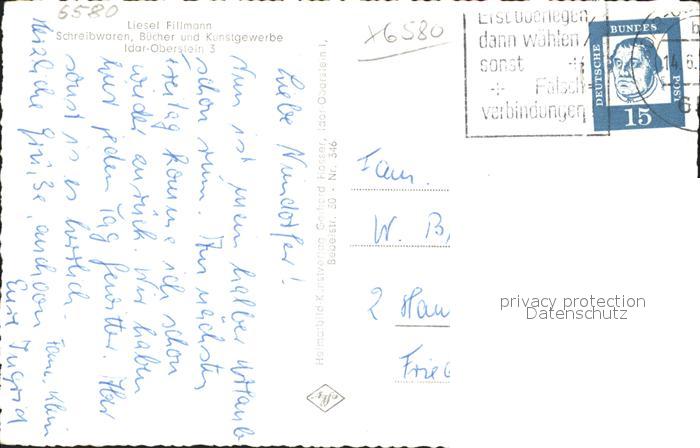 6580
Liesel Fillmann
Schreibwaren, Bücher und Kunstgewerbe
Idar-Oberstein 3
x6580
Erst überlegen
dann wählen
sonst
Falsch
verbindungen
DEUTSCHE
BUNDES
POST
15
14.6.
Liebe
Nun ist mein halber Urlaub
schon rum. Am nächsten
Freitag komme ich schon
wieder zurück. Wir haben
hier jeden Tag Gewitter. Aber
sonst ist es herrlich.
Herzliche Grüße, auch von Fam. Klein
Eure Ingrid
Heimatbild Kunstverlag Gerhard Hosser, Idar Oberstein 1,
Nr. 346
Fam.
W. B
2 Ham
Fried
privacy protection
Datenschutz